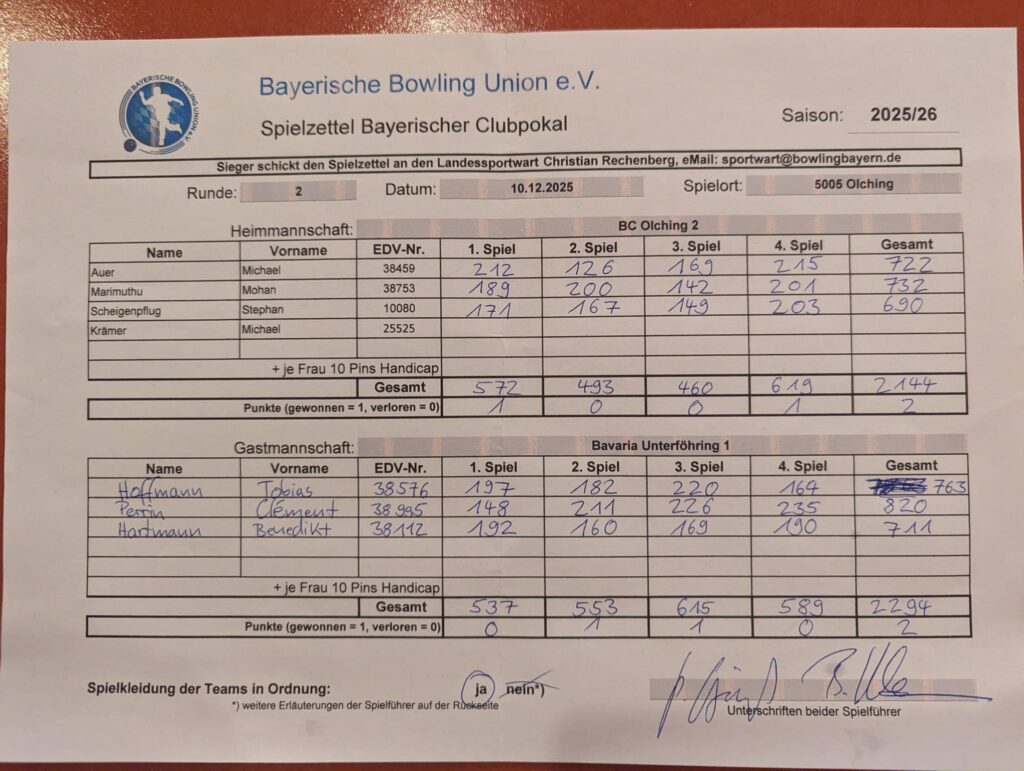 BAYERISCHE BOWLING UNION e.V.
Bayerische Bowling Union e.V.
Spielzettel Bayerischer Clubpokal
Saison: 2025/26
Sieger schickt den Spielzettel an den Landessportwart Christian Rechenberg, eMail: sportwart@bowlingbayern.de
Runde: 2 Datum: 10.12.2025 Spielort: 5005 Olching
Heimmannschaft: BC Olching 2
Name Vorname EDV-Nr. 1. Spiel 2. Spiel 3. Spiel 4. Spiel Gesamt
Auer Michael 38459 212 126 169 215 722
Marimuthu Mohan 38753 189 200 142 201 732
Scheigenpflug Stephan 10080 171 167 149 203 690
Krämer Michael 25525
+ je Frau 10 Pins Handicap
Gesamt 572 493 460 619 2144
Punkte (gewonnen = 1, verloren = 0) 1 0 0 1 2
Gastmannschaft: Bavaria Unterföhring 1
Name Vorname EDV-Nr. 1. Spiel 2. Spiel 3. Spiel 4. Spiel Gesamt
Hoffmann Tobias 38576 197 182 220 164 763
Perrin Clément 38995 148 211 226 235 820
Hartmann Benedikt 38112 192 160 169 190 711
+ je Frau 10 Pins Handicap
Gesamt 537 553 615 589 2294
Punkte (gewonnen = 1, verloren = 0) 0 1 1 0 2
Spielkleidung der Teams in Ordnung: ja nein*)
*) weitere Erläuterungen der Spielführer auf der Rückseite
Unterschriften beider Spielführer